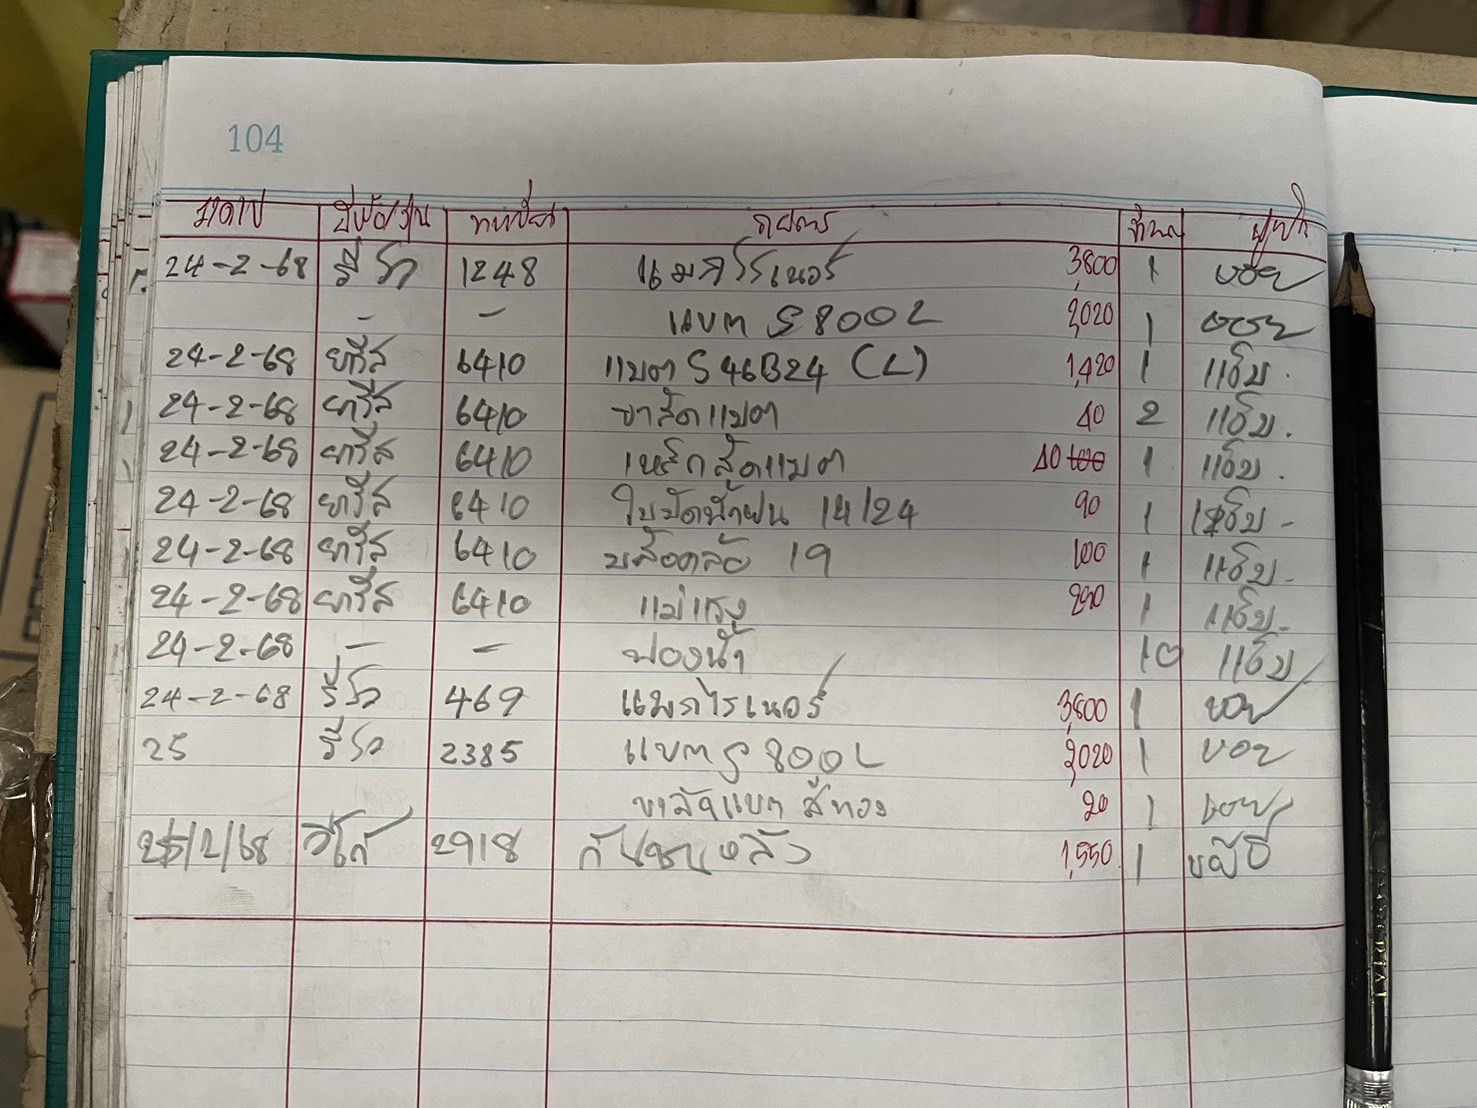 104
ยี่ห้อ/รุ่น ทะเบียน รายการ จำนวน
24-2-68 รีโว 1248 แมคไรเนอร์ 3,800 1 บอย
- - แบต S 800 L 2,020 1 บอย
24-2-68 ยาริส 6410 แบต S 46B24 (L) 1,420 1 แโบ.
24-2-68 ยาริส 6410 ขารัดแบต 40 2
24-2-68 ยาริส 6410 เหล็กรัดแบต 40 1
24-2-68 ยาริส 6410 ใบปัดน้ำฝน 14/24 90 1
24-2-68 ยาริส 6410 บล็อคล้อ 19 100 1
24-2-68 ยาริส 6410 แม่แรง 290 1
24-2-68 - - ฟองน้ำ 10
24-2-68 รีโว 469 แมคไรเนอร์ 3,800 1 บอย
25 รีโว 2385 แบต S 800 L 2,020 1 บอย
ขารัดแบต สีทอง 20 1 บอย
25/2/68 วีโก้ 2918 กันชนหลัง 1,550 1